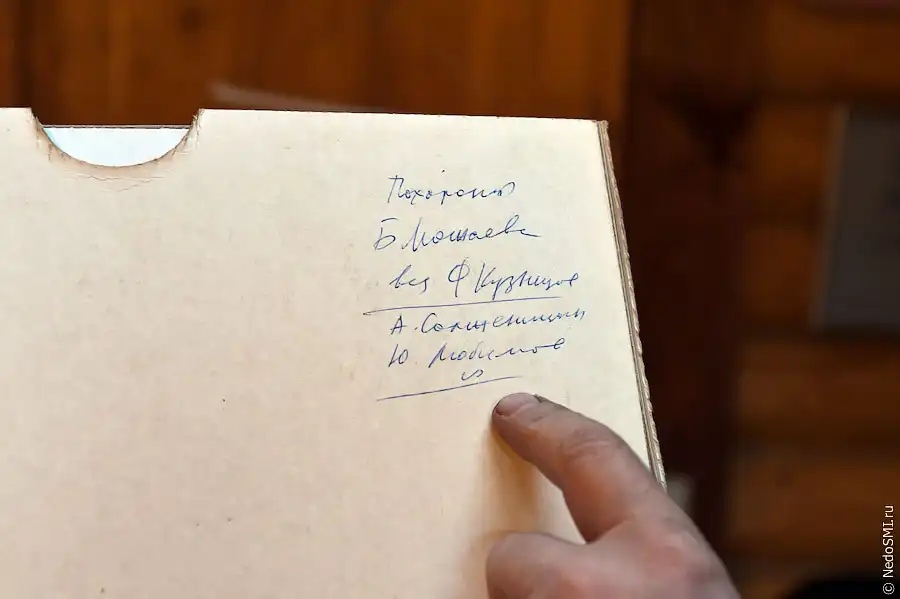 Похороны
Б Можаева
вед Ф Кузнецов
А. Солженицын
Ю. Любимов
© NedoSMI.ru